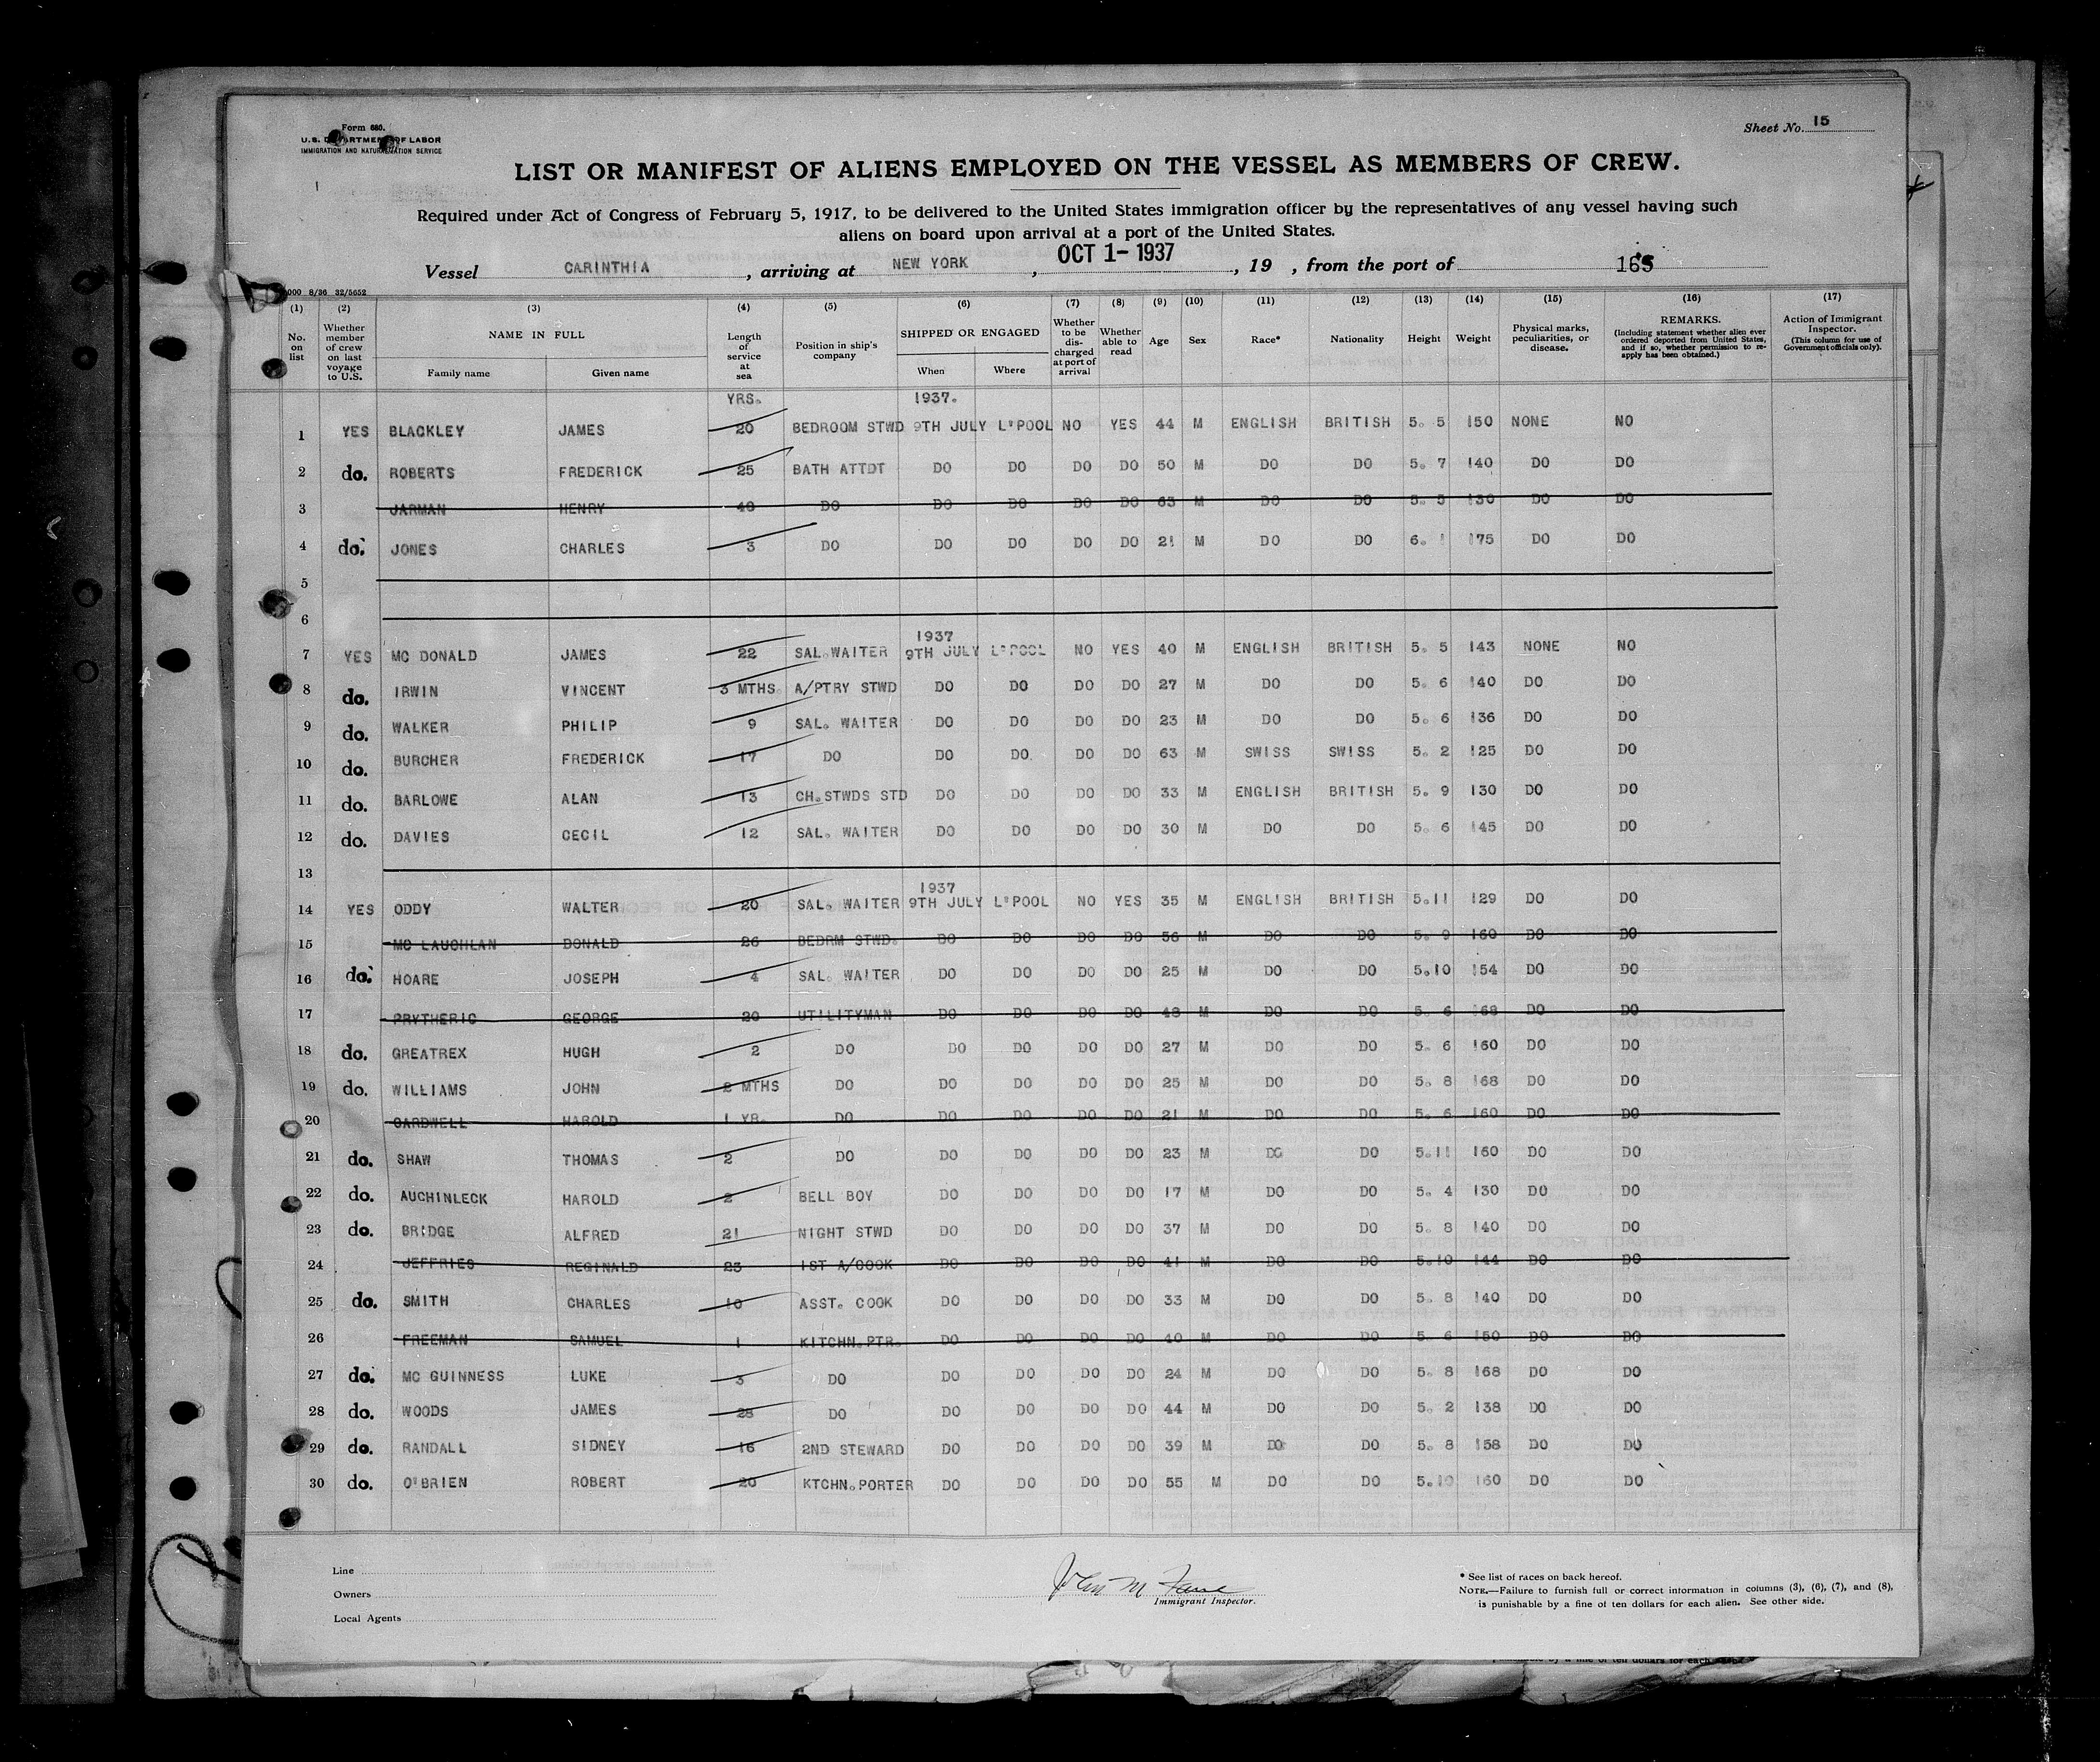 Form 680.
U.S. DEPARTMENT OF LABOR
IMMIGRATION AND NATURALIZATION SERVICE
Sheet No. 15
LIST OR MANIFEST OF ALIENS EMPLOYED ON THE VESSEL AS MEMBERS OF CREW.
Required under Act of Congress of February 5, 1917, to be delivered to the United States immigration officer by the representatives of any vessel having such
aliens on board upon arrival at a port of the United States.
Vessel CARINTHIA, arriving at NEW YORK, OCT 1- 1937, 19 , from the port of 165
000 8/36 32/5652
(1) No. on list
(2) Whether member of crew on last voyage to U.S.
(3) NAME IN FULL
Family name Given name
(4) Length of service at sea
(5) Position in ship's company
(6) SHIPPED OR ENGAGED
When Where
(7) Whether to be discharged at port of arrival
(8) Whether able to read
(9) Age
(10) Sex
(11) Race*
(12) Nationality
(13) Height
(14) Weight
(15) Physical marks, peculiarities, or disease.
(16) REMARKS. (Including statement whether alien ever ordered deported from United States, and if so, whether permission to re-apply has been obtained.)
(17) Action of Immigrant Inspector. (This column for use of Government officials only).
YRS. 1937.
1 YES BLACKLEY JAMES 20 BEDROOM STWD 9TH JULY L'POOL NO YES 44 M ENGLISH BRITISH 5. 5 150 NONE NO
2 do. ROBERTS FREDERICK 25 BATH ATTDT DO DO DO DO 50 M DO DO 5. 7 140 DO DO
3 JARMAN HENRY 40 DO DO DO DO DO 63 M DO DO 5. 5 130 DO DO
4 do. JONES CHARLES 3 DO DO DO DO DO 21 M DO DO 6. 1 175 DO DO
5
6
1937
7 YES MC DONALD JAMES 22 SAL.WAITER 9TH JULY L'POOL NO YES 40 M ENGLISH BRITISH 5. 5 143 NONE NO
8 do. IRWIN VINCENT 3 MTHS. A/PTRY STWD DO DO DO DO 27 M DO DO 5. 6 140 DO DO
9 do. WALKER PHILIP 9 SAL. WAITER DO DO DO DO 23 M DO DO 5. 6 136 DO DO
10 do. BURCHER FREDERICK 17 DO DO DO. DO DO 63 M SWISS SWISS 5. 2 125 DO DO
11 do. BARLOWE ALAN 13 CH.STWDS STD DO DO DO DO 33 M ENGLISH BRITISH 5. 9 130 DO DO
12 do. DAVIES CECIL 12 SAL. WAITER DO DO DO DO 30 M DO DO 5. 6 145 DO DO
13
1937
14 YES ODDY WALTER 20 SAL. WAITER 9TH JULY L'POOL NO YES 35 M ENGLISH BRITISH 5.11 129 DO DO
15 MC LAUCHLAN DONALD 26 BEDRM STWD. DO DO DO DO 56 M DO DO 5. 9 160 DO DO
16 do. HOARE JOSEPH 4 SAL. WAITER DO DO DO DO 25 M DO DO 5.10 154 DO DO
17 PRYTHERIC GEORGE 20 UTILITYMAN DO DO DO DO 48 M DO DO 5. 6 168 DO DO
18 do. GREATREX HUGH 2 DO DO DO DO DO 27 M DO DO 5. 6 160 DO DO
19 do. WILLIAMS JOHN 2 MTHS DO DO DO DO DO 25 M DO DO 5. 8 168 DO DO
20 CARDWELL HAROLD 1 YR. DO DO DO DO DO 21 M DO DO 5. 6 160 DO DO
21 do. SHAW THOMAS 2 DO DO DO DO DO 23 M DO DO 5.11 160 DO DO
22 do. AUCHINLECK HAROLD 2 BELL BOY DO DO DO DO 17 M DO DO 5. 4 130 DO DO
23 do. BRIDGE ALFRED 21 NIGHT STWD DO DO DO DO 37 M DO DO 5. 8 140 DO DO
24 JEFFRIES REGINALD 23 1ST A/COOK DO DO DO DO 41 M DO DO 5.10 144 DO DO
25 do. SMITH CHARLES 10 ASST. COOK DO DO DO DO 33 M DO DO 5. 8 140 DO DO
26 FREEMAN SAMUEL 1 KITCHN.PTR. DO DO DO DO 40 M DO DO 5. 6 150 DO DO
27 do. MC GUINNESS LUKE 3 DO DO DO DO DO 24 M DO DO 5. 8 168 DO DO
28 do. WOODS JAMES 28 DO DO DO DO DO 44 M DO DO 5. 2 138 DO DO
29 do. RANDALL SIDNEY 16 2ND STEWARD DO DO DO DO 39 M DO DO 5. 8 158 DO DO
30 do. O'BRIEN ROBERT 20 KTCHN.PORTER DO DO DO DO 55 M DO DO 5.10 160 DO DO
Line
Owners
Local Agents
John M
Immigrant Inspector.
* See list of races on back hereof.
NOTE.—Failure to furnish full or correct information in columns (3), (6), (7), and (8),
is punishable by a fine of ten dollars for each alien. See other side.